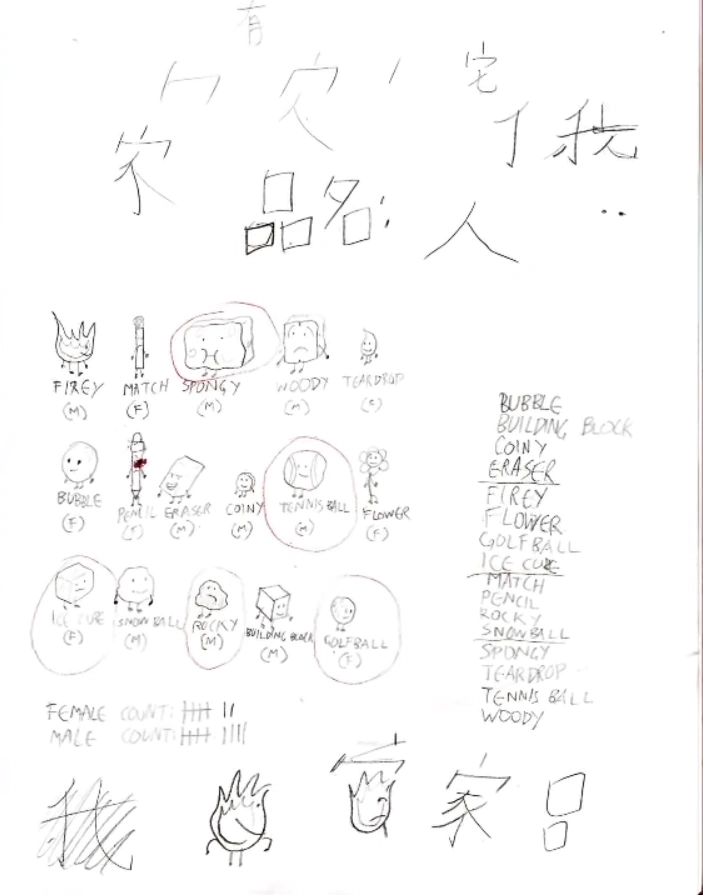 有
宅
家
品名:
人
FIREY MATCH SPONGY WOODY TEARDROP
(M) (F) (M) (M) (C)
BUBBLE PENCIL ERASER COINY TENNIS BALL FLOWER
(F) (F) (M) (M) (M) (F)
ICE CUBE SNOWBALL ROCKY BUILDING BLOCK GOLFBALL
(F) (M) (M) (M) (F)
FEMALE COUNT:
MALE COUNT:
BUBBLE
BUILDING BLOCK
COINY
ERASER
FIREY
FLOWER
GOLFBALL
ICE CUBE
MATCH
PENCIL
ROCKY
SNOWBALL
SPONGY
TEARDROP
TENNIS BALL
WOODY
我 家